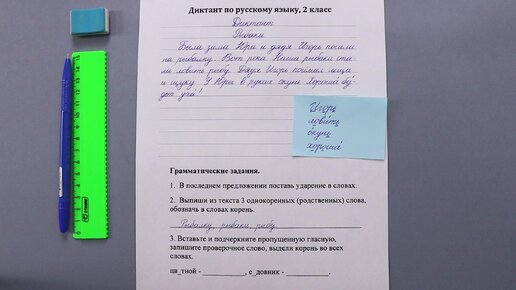 Диктант по русскому языку, 2 класс
Диктант
Рыбаки
Была зима Юра и дядя Игорь пошли
на рыбалку. Вот река Наши рыбаки ста-
ли ловить рыбу. Дядя Игорь поймал леща
и щуку. У Юры в руках окунь Хороша бу-
дет уха!
Игорь
ловить
окунь
хороша́
Грамматические задания.
1. В последнем предложении поставь ударение в словах.
2. Выпиши из текста 3 однокоренных (родственных) слова,
обозначь в словах корень.
Рыбалку, рыбаки, рыбу.
3. Вставьте и подчеркните пропущенную гласную,
запишите проверочное слово, выдели корень во всех
словах.
цв_тной - __________, с_довник - __________.
0 1 2 3 4 5 6 7 8 9 10 11 12 13 14 15